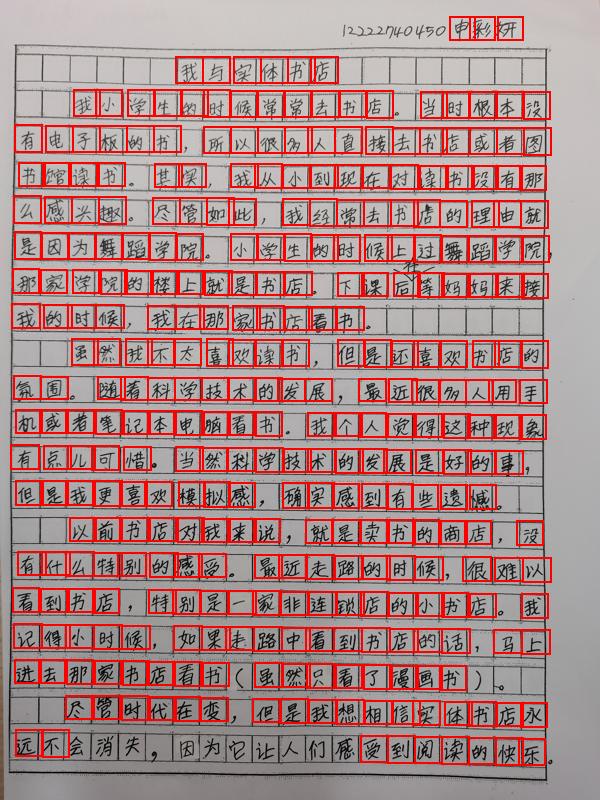 12222740450 申彩妍
我与实体书店
我小学生的时候常常去书店。当时根本没
有电子板的书，所以很多人直接去书店或者图
书馆读书。其实，我从小到现在对读书没有那
么感兴趣。尽管如此，我经常去书店的理由就
是因为舞蹈学院。小学生的时候上过舞蹈学院，
那家学院的楼上就是书店。下课后在等妈妈来接
我的时候，我在那家书店看书。
虽然我不太喜欢读书，但是还喜欢书店的
氛围。随着科学技术的发展，最近很多人用手
机或者笔记本电脑看书。我个人觉得这种现象
有点儿可惜。当然科学技术的发展是好的事，
但是我更喜欢模拟感，确实感到有些遗憾。
以前书店对我来说，就是卖书的商店，没
有什么特别的感受。最近走路的时候，很难以
看到书店，特别是一家非连锁店的小书店。我
记得小时候，如果走路中看到书店的话，马上
进去那家书店看书（虽然只看了漫画书）。
尽管时代在变，但是我想相信实体书店永
远不会消失，因为它让人们感受到阅读的快乐。